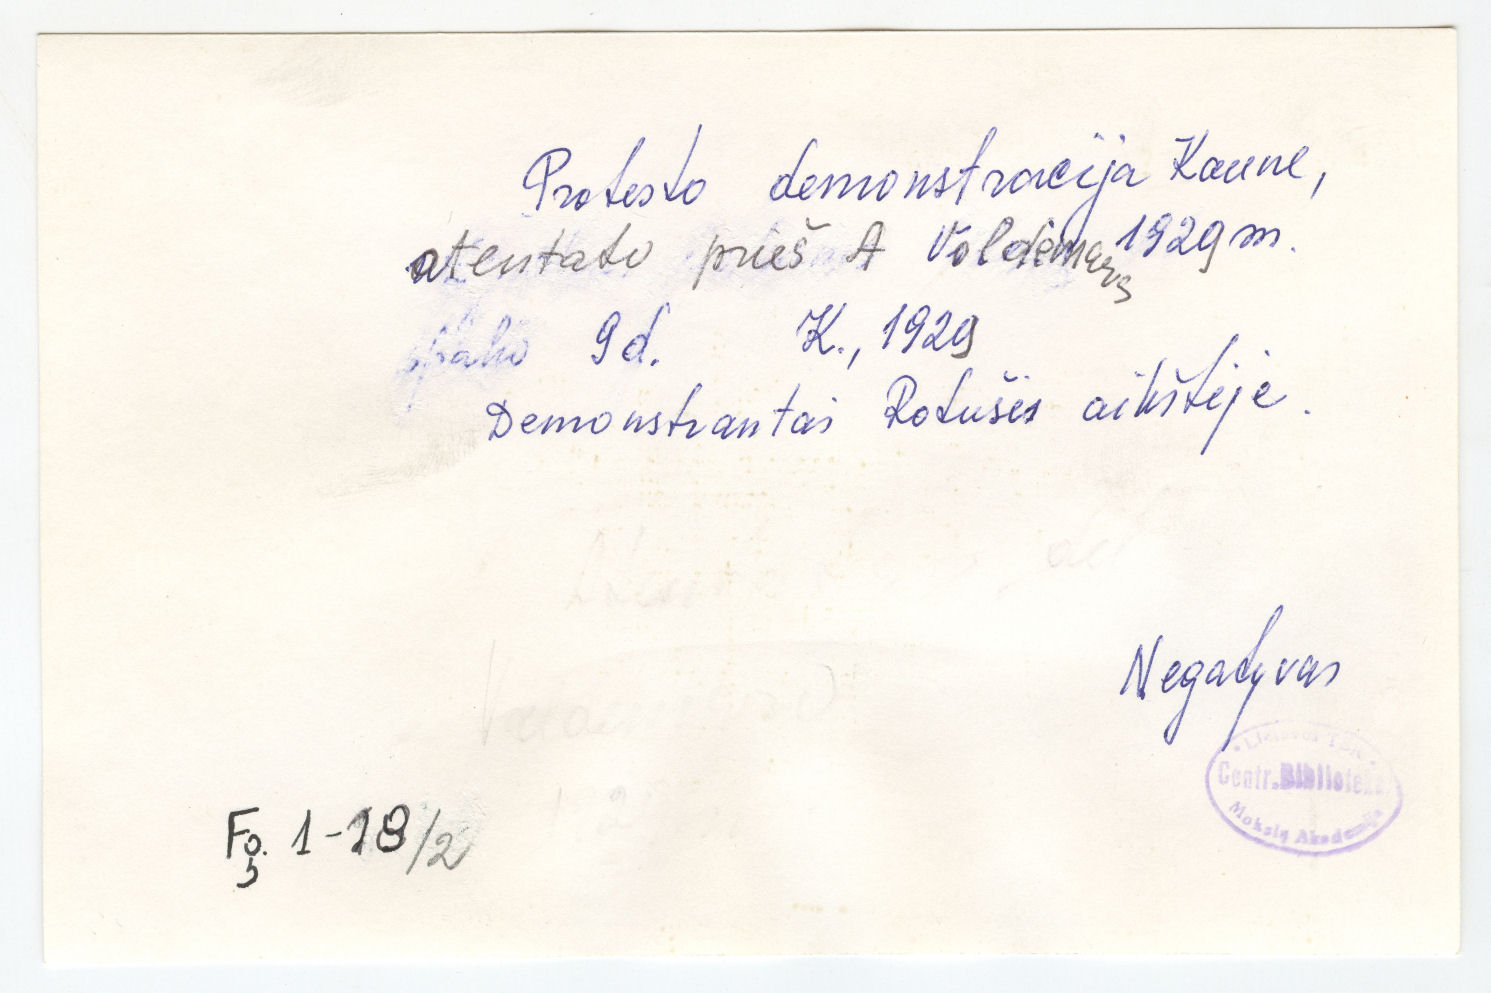 Protesto demonstracija Kaune,
atentato prieš A Voldemarą 1929 m.
spalio 9 d. K., 1929
Demonstrantai Rotušės aikštėje.
Negatyvas
Lietuvos TSR
Centr. Biblioteka
Mokslų Akademija
Fg. 1-18/2